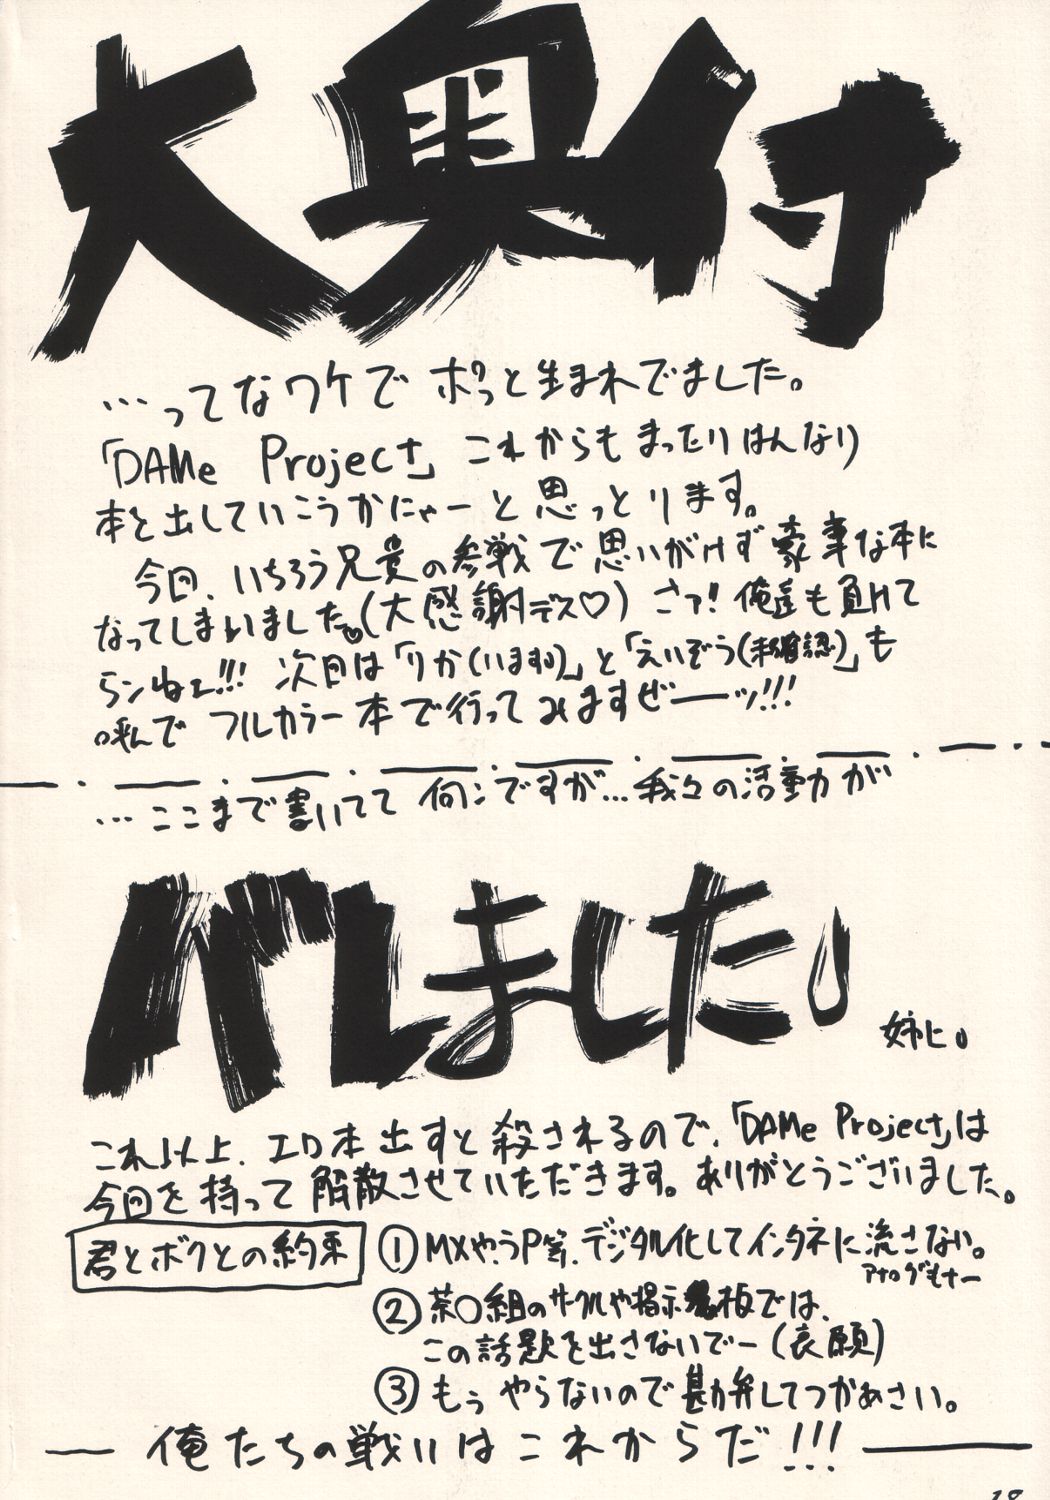 大奥付
…ってなワケで ポっと生まれでました。
「DAMe Project」これからもまったりはんなり
本を出していこうかにゃーと思っとります。
今回、いちろう兄貴の参戦で思いがけず豪華な本に
なってしまいました(大感謝デス♡) さァ!俺達も負けて
らンねェ!!! 次回は「りか(います)」と「えいぞう(未確認)」も
呼んで フルカラー本で行ってみますぜーーッ!!!
…ここまで書いてて何ンですが…我々の活動が
バレました。
姉に。
これ以上、エロ本出すと殺されるので、「DAMe Project」は
今回を持って解散させていただきます。ありがとうございました。
君とボクとの約束
①MXやうP等、デジタル化してインタネに流さない。
アナログもナー
②茶〇組のサークルや掲示板では、
この話題を出さないでー(哀願)
③もぅやらないので勘弁してつかぁさい。
俺たちの戦いはこれからだ!!!